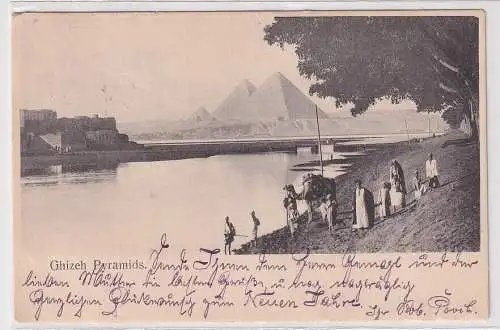 Ghizeh Pyramids.
Sende Ihnen dem Herrn Gemahl und der
lieben Mutter die besten Grüße, u. bring nachträglich
herzlichen Glückwunsch zum Neuen Jahre.
Ihr Rob.